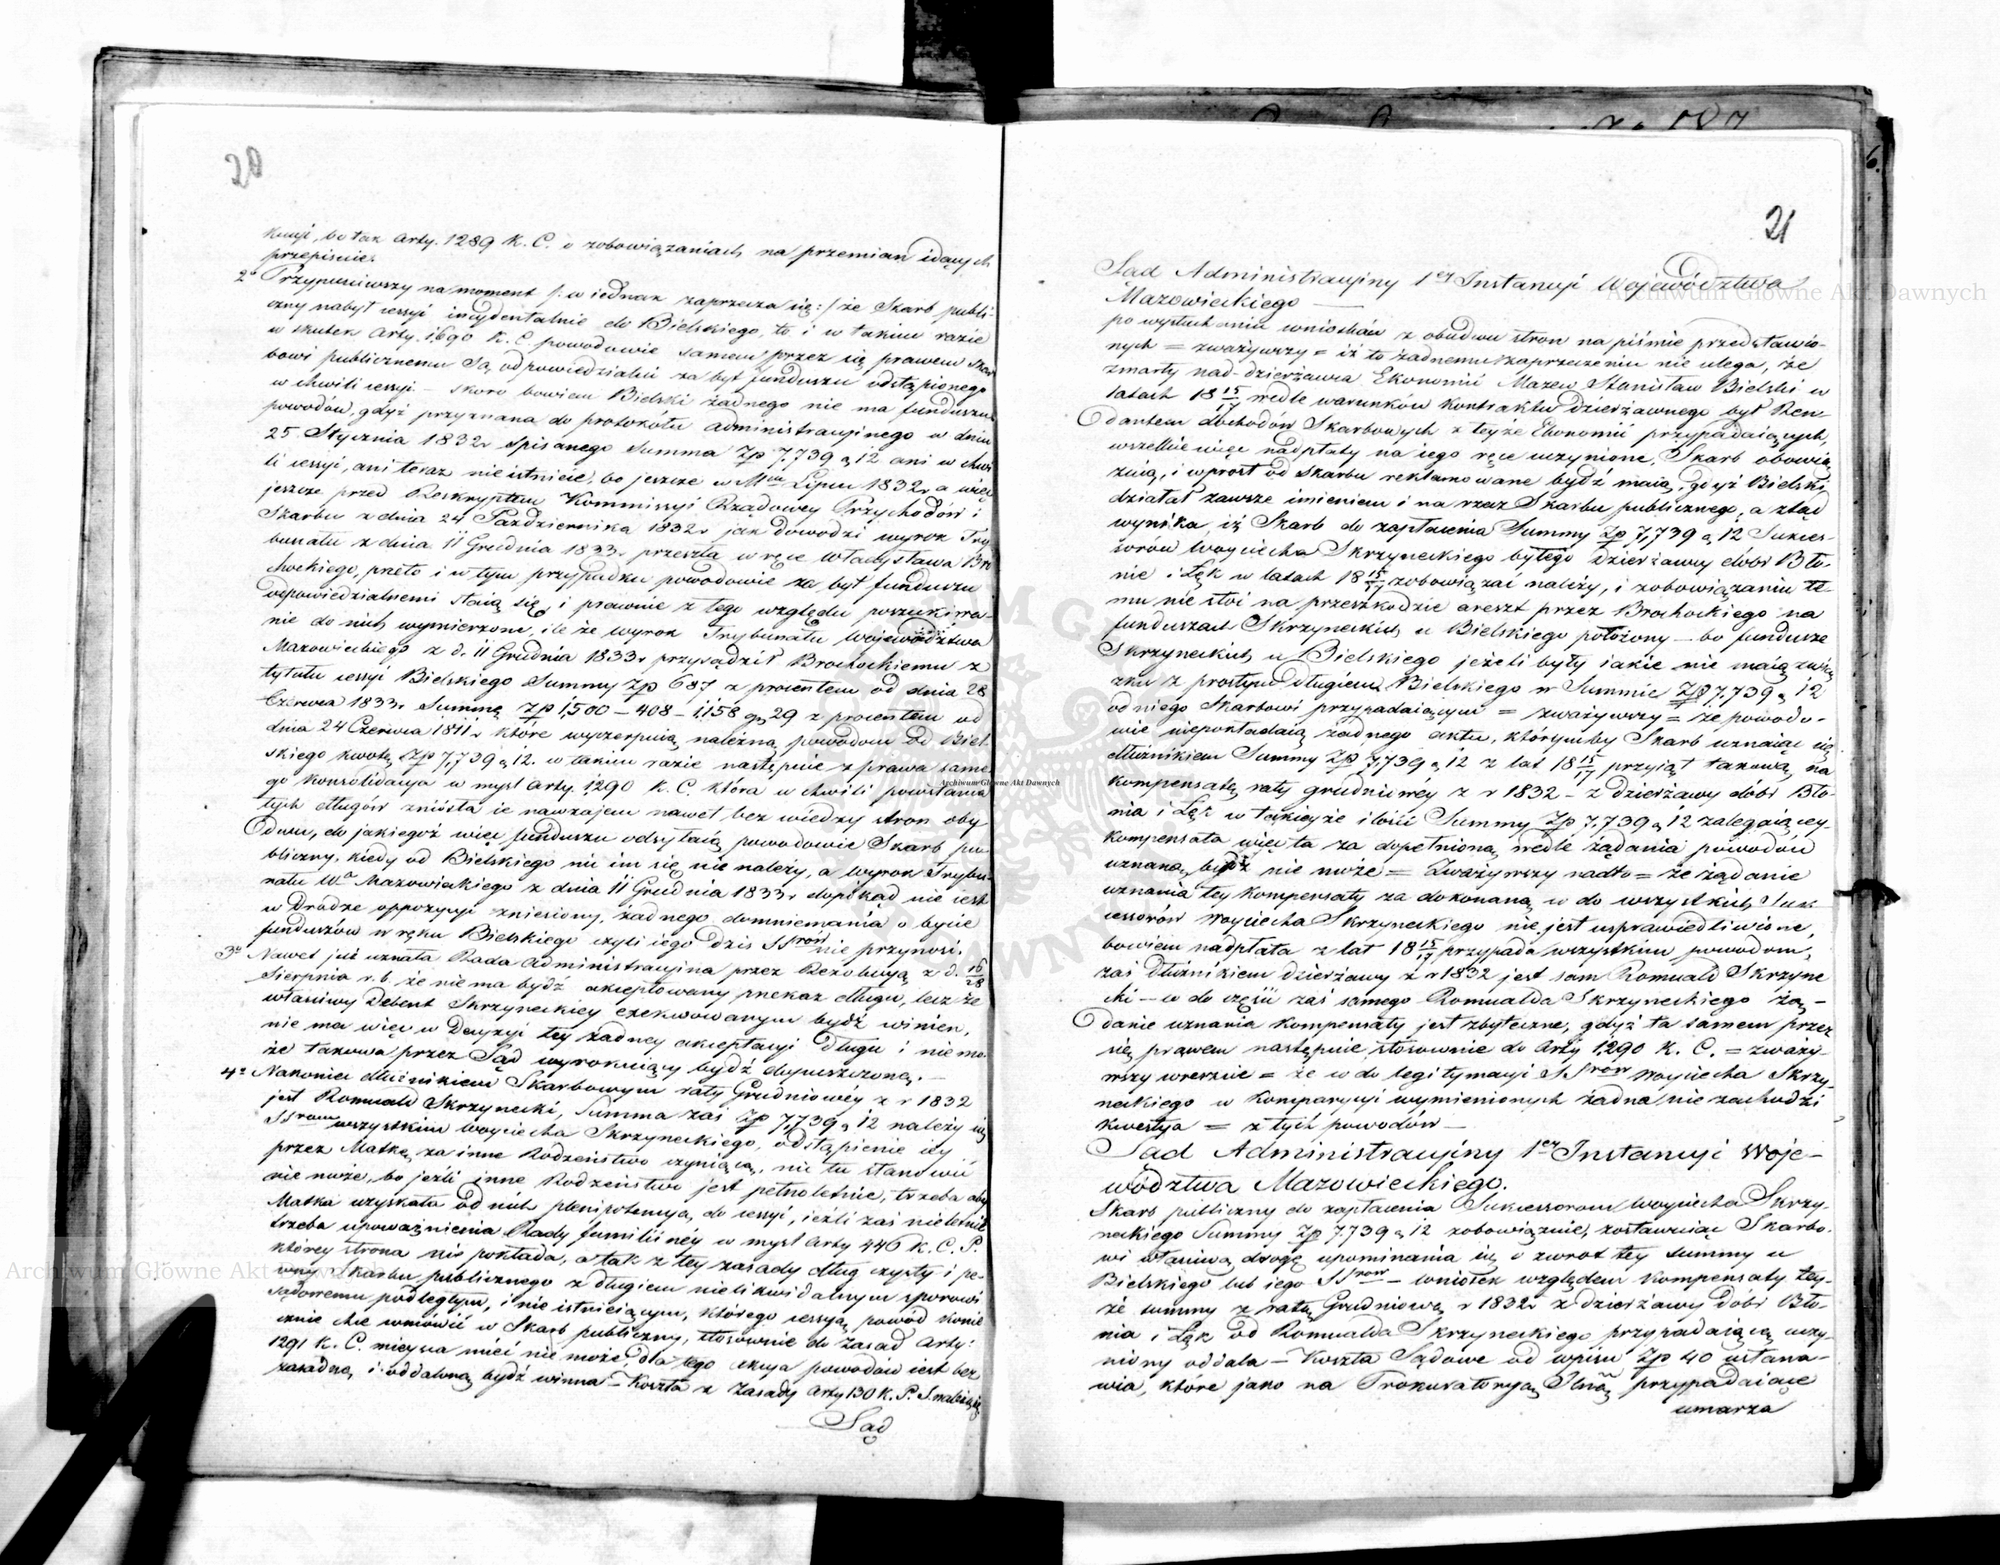 20
kucyi, bo tak Arty. 1289 K. C. o zobowiązaniach na przemian idących
przepisuie.
2o Przypuściwszy na moment /: w iednak zaprzecza się :/ że Skarb publi-
czny nabył cessyi incydentalnie do Bielskiego, to i w takim razie
w skutek Arty. 1690 K. C. powodowie samem przez się prawem Skar
bowi publicznemu są odpowiedzialni za byt funduszu odstąpionego
w chwili cessyi – skoro bowiem Bielski żadnego nie ma funduszu
powodów, gdyż przyznana do protokółu administracyinego w dniu
25 Stycznia 1832 r spisanego Summa Zp 7,739 g 12 ani w chwi
li cessyi, ani teraz nie istnieie, bo jeszcze w Mcu Lipcu 1832 r a więc
jeszcze przed Reskryptem Kommissyi Rządowey Przychodów i
Skarbu z dnia 24 Października 1832 r jak dowodzi wyrok Try
bunału z dnia 11 Grudnia 1833 r przeszła w ręce Władysława Bro
chockiego, przeto i w tym przypadku powodowie za byt funduszu
odpowiedzialnemi staią się, i prawnie z tego względu poszukiwa-
nie do nich wymierzone, ile że wyrok Trybunału Województwa
Mazowieckiego z d. 11 Grudnia 1833 r przysądził Brochockiemu z
tytułu cessyi Bielskiego Summy Zp 687 z procentem od dnia 28
Czerwca 1833 r Summę Zp 1,500 – 408 – 1,158 gr 29 z procentem od
dnia 24 Czerwca 1811 r które wyczerpnią należną powodom od Biel-
skiego kwotę Zp 7,739 g 12. w takim razie następuie z prawa same
go konsolidacya w myśl Arty. 1290 K. C. która w chwili powstania
tych długów zniosła ie nawzajem nawet bez wiedzy stron oby
dwu, do jakiegoż więc funduszu odsyłaią powodowie Skarb pu
bliczny, kiedy od Bielskiego nic im się nie należy, a wyrok Trybu-
nału Wa Mazowieckiego z dnia 11 Grudnia 1833 r dopókąd nie iest
w Drodze oppozycyi zniesiony, żadnego domniemania o bycie
funduszów w ręku Bielskiego czyli iego dziś SSrów nie przynosi.
3o Nawet już uznała Rada Administracyina przez Rezolucyą z d. 16/28
Sierpnia r. b. że nie ma bydź akceptowany przekaz długu, lecz że
właściwy Debent Skrzyneckiey exekwowanym bydź winien,
nie ma więc w Decyzyi tey żadney akceptacyi długu i nie mo-
że takowa przez Sąd wyrokuiący bydź dopuszczoną. –
4o Nakoniec dłużnikiem Skarbowym raty Grudniowéy z r 1832
jest Romuald Skrzynecki, Summa zaś Zp 7,739 g 12 należy się
SSrom wszystkim Woyciecha Skrzyneckiego, odstąpienie iey
przez Matkę za inne Rodzeństwo czyniącą, nic tu stanowić
nie może, bo jeźli inne Rodzeństwo jest pełnoletnie, trzeba aby
Matka uzyskała od nich plenipotencyą do cessyi, ieźli zaś nieletnie
trzeba upoważnienia Rady familiiney w myśl Arty 446 K. C. P.
którey strona nie pokłada, a tak z tey zasady dług czysty i pe-
wny Skarbu publicznego z długiem nielikwidalnym sporowi
sądowemu podległym, i nie istnieiącym, którego cessyą powód konie
cznie chce wmówić w Skarb publiczny, stosownie do zasad Arty:
1291 K. C. mieysca mieć nie może, dla tego akcya powodów iest bez
zasadną i oddaloną bydź winna – Koszta z zasady Arty 130 K. P. S. należą się
Sąd
21
Sąd Administracyiny 1ey Instancyi Województwa
Mazowieckiego —
po wysłuchaniu wniosków z obudwu stron na piśmie przedstawio-
nych = zważywszy = iż to żadnemu zaprzeczeniu nie ulega, że
zmarły nad-dzierżawca Ekonomii Mazew Stanisław Bielski w
latach 18 15/17 wedle warunków kontraktu dzierżawnego był Ren-
dantem dochodów Skarbowych z teyże Ekonomii przypadaiących,
wszelkie więc nadpłaty na iego ręce uczynione, Skarb obowią
zuią, i wprost od Skarbu reklamowane bydź maią, gdyż Bielski
działał zawsze imieniem i na rzecz Skarbu publicznego, a ztąd
wynika, iż Skarb do zapłacenia Summy Zp 7,739 g 12 Sukces-
sorów Woyciecha Skrzyneckiego byłego dzierżawcy dóbr Bło-
nie i Łęk w latach 18 15/17 zobowiązać należy, i zobowiązaniu te-
mu nie stoi na przeszkodzie areszt przez Brochockiego na
funduszach Skrzyneckich u Bielskiego położony – bo fundusze
Skrzyneckich u Bielskiego jeżeli były iakie nie maią zwią
zku z prostym długiem Bielskiego w Summie Zp 7,739 g 12
od niego Skarbowi przypadaiącym = zważywszy = że powodo-
wie niepokładaią żadnego aktu, którymby Skarb uznaiąc się
dłużnikiem Summy Zp 7,739 g 12 z lat 18 15/17 przyiął takową na
kompensatę raty grudniowéy z r 1832 – z dzierżawy dóbr Bło-
nia i Łęk w takieyże ilości Summy Zp 7,739 g 12 zalegaiącey-
kompensata więc ta za dopełnioną wedle żądania powodów
uznaną bydź nie może = Zważywszy nadto = że żądanie
uznania tey kompensaty za dokonaną w do wszystkich Suk
cessorów Woyciecha Skrzyneckiego nie jest usprawiedliwione,
bowiem nadpłata z lat 18 15/17 przypada wszystkim powodom,
zaś Dłużnikiem dzierżawy z r 1832 jest sam Romuald Skrzyne
cki – w do części zaś samego Romualda Skrzyneckiego żą-
danie uznania kompensaty jest zbyteczne, gdyż ta samem przez
się prawem następuie stosownie do Arty 1,290 K. C. = zważy-
wszy wreszcie = że w do legitymacyi SSrów Woyciecha Skrzy-
neckiego w komparycyi wymienionych żadna nie zachodzi
kwestya = z tych powodów –
Sąd Administracyiny 1ey Instancyi Woje-
wództwa Mazowieckiego.
Skarb publiczny do zapłacenia Sukcessorom Woyciecha Skrzy-
neckiego Summy Zp 7,739 g 12 zobowiązuie, zostawuiąc Skarbo-
wi właściwą drogę upominania się o zwrot tey summy u
Bielskiego lub iego SSrów – wniosek względem kompensaty tey-
że summy z ratą Grudniową r 1832 r z dzierżawy dóbr Bło-
nia i Łąk od Romualda Skrzyneckiego przypadaiącą uczy-
niony oddala – Koszta Sądowe od wpisu Zp 40 ustana-
wia, które jako na Prokuratoryą Jlną przypadaiące
umarza
Archiwum Główne Akt Dawnych
Archiwum Główne Akt Dawnych
Archiwum Główne Akt Dawnych